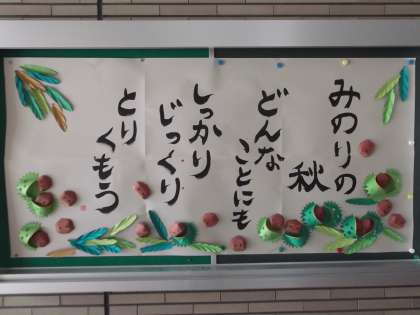 みのりの
秋
どんな
ことにも
しっかり
じっくり
とり
くもう